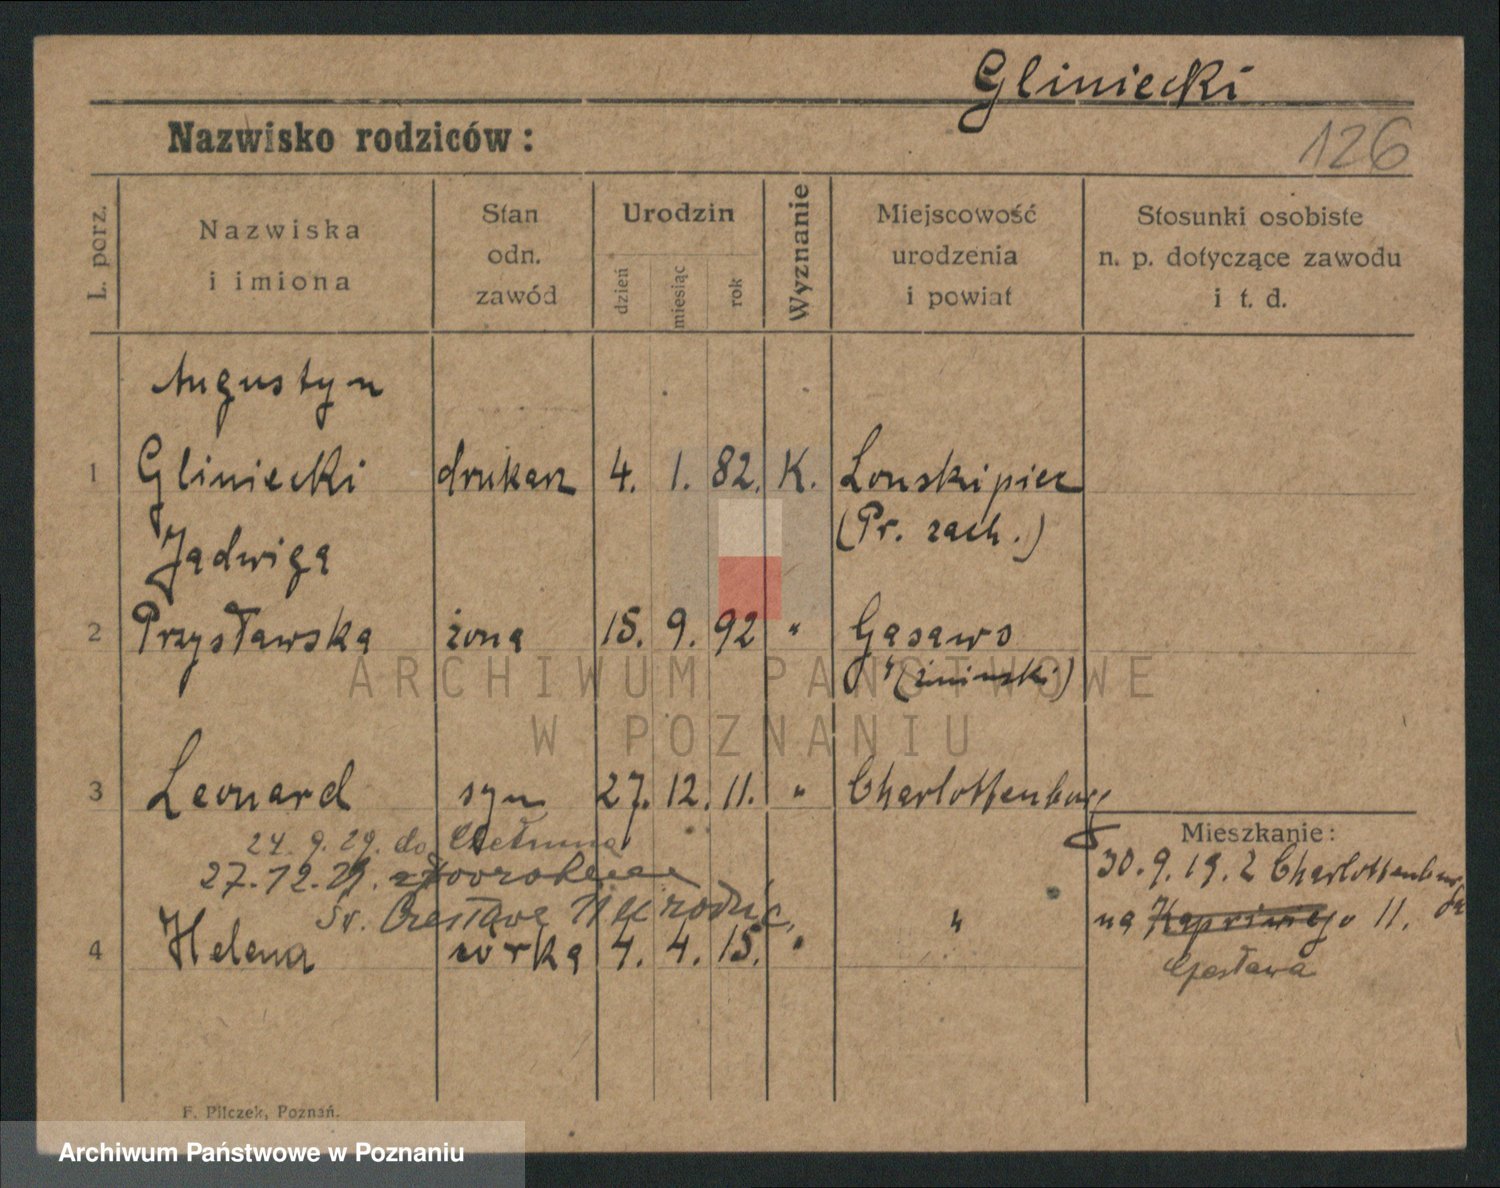 Gliniecki
Nazwisko rodziców:
126
L. porz.
Nazwiska
i imiona
Stan
odn.
zawód
Urodzin
dzień
miesiąc
rok
Wyznanie
Miejscowość
urodzenia
i powiat
Stosunki osobiste
n. p. dotyczące zawodu
i t. d.
Augustyn
1 Gliniecki drukarz 4. 1. 82. K. Louskipiec
(Pr. zach.)
Jadwiga
2 Przysławska żona 15. 9. 92 " Gąsawo
(Żniński)
3 Leonard syn 27. 12. 11. " Charlottenburg
24. 9. 29. do Chełmna
27.12.29.
Św. Czesława 11 rodzic.
4 Helena córka 4. 4. 15. " "
Mieszkanie:
30. 9. 19. z Charlottenburga
na 11.
Czesława
F. Pilczek, Poznań.
ARCHIWUM PAŃSTWOWE
W POZNANIU
Archiwum Państwowe w Poznaniu